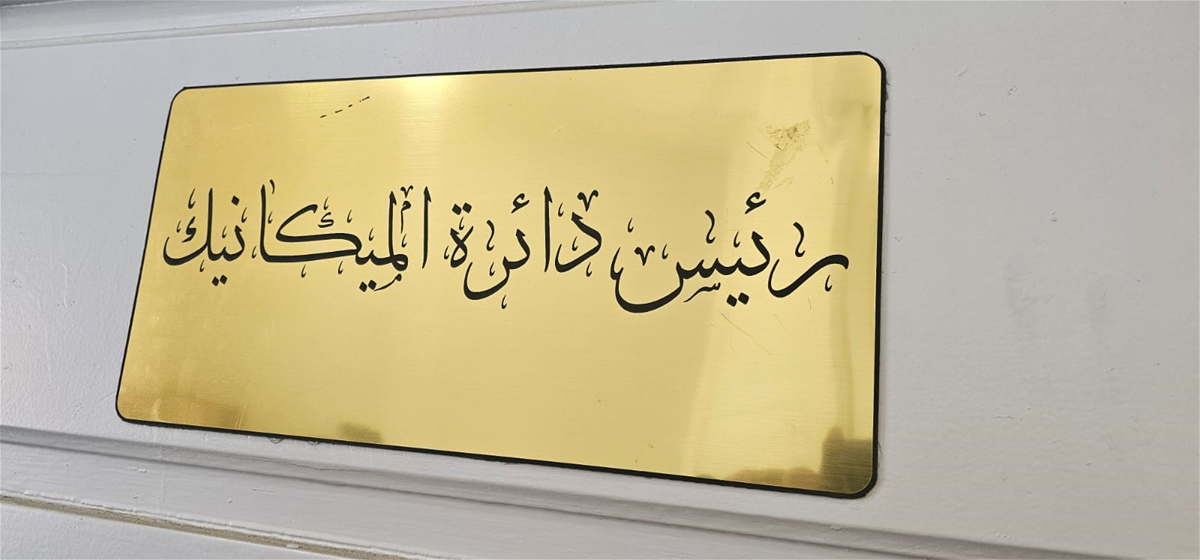 رئيس دائرة الميكانيك